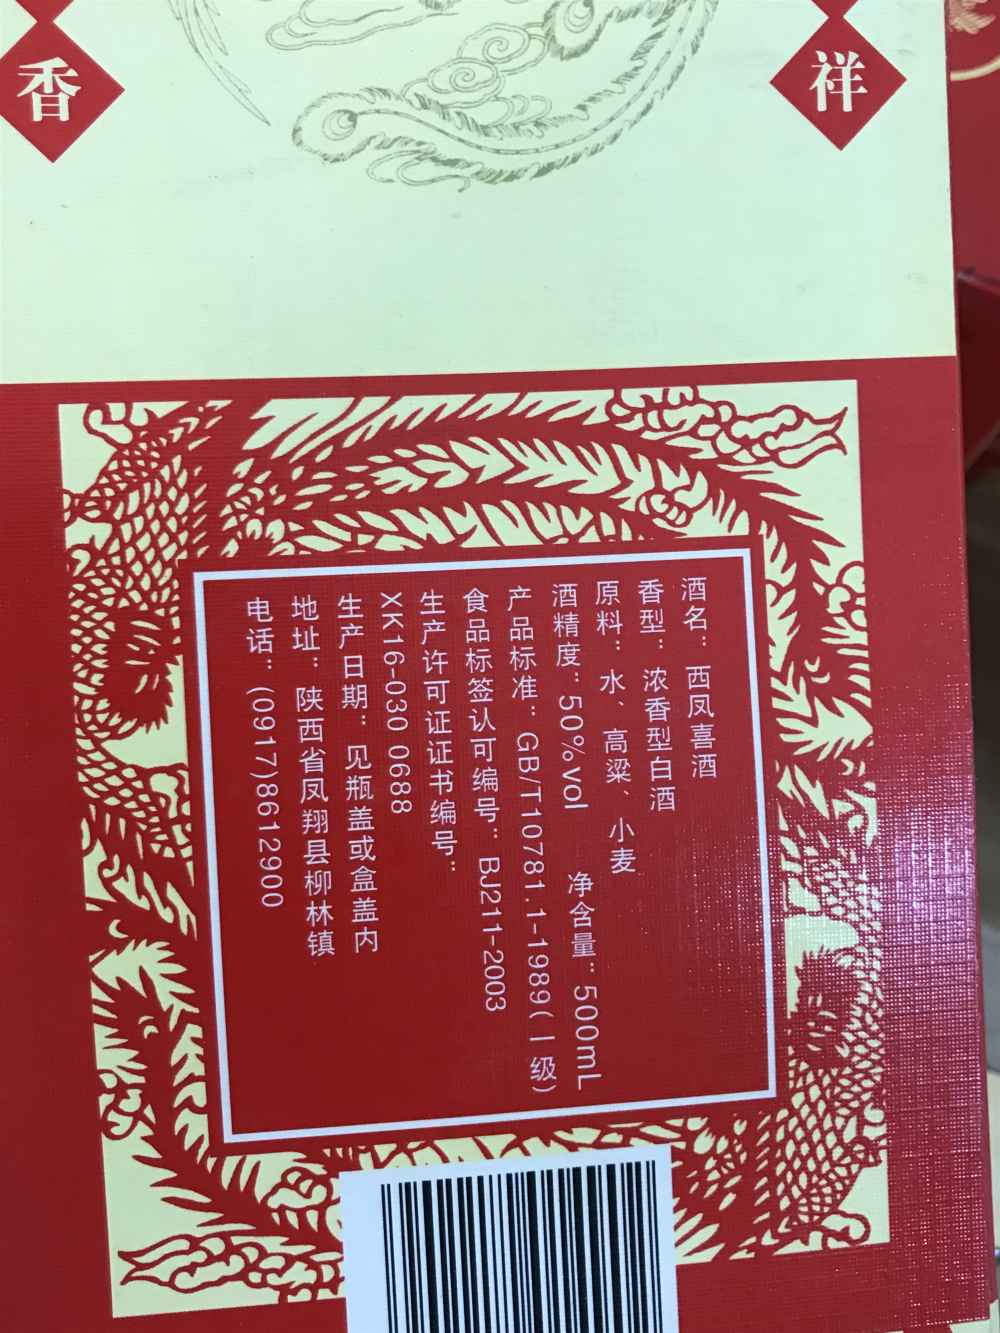 香
祥
酒名：西凤喜酒
香型：浓香型白酒
原料：水、高粱、小麦
酒精度：50%vol 净含量：500mL
产品标准：GB/T10781.1-1989(一级)
食品标签认可编号：BJ211-2003
生产许可证证书编号：
XK16-030 0688
生产日期：见瓶盖或盒盖内
地址：陕西省凤翔县柳林镇
电话：(0917)8612900